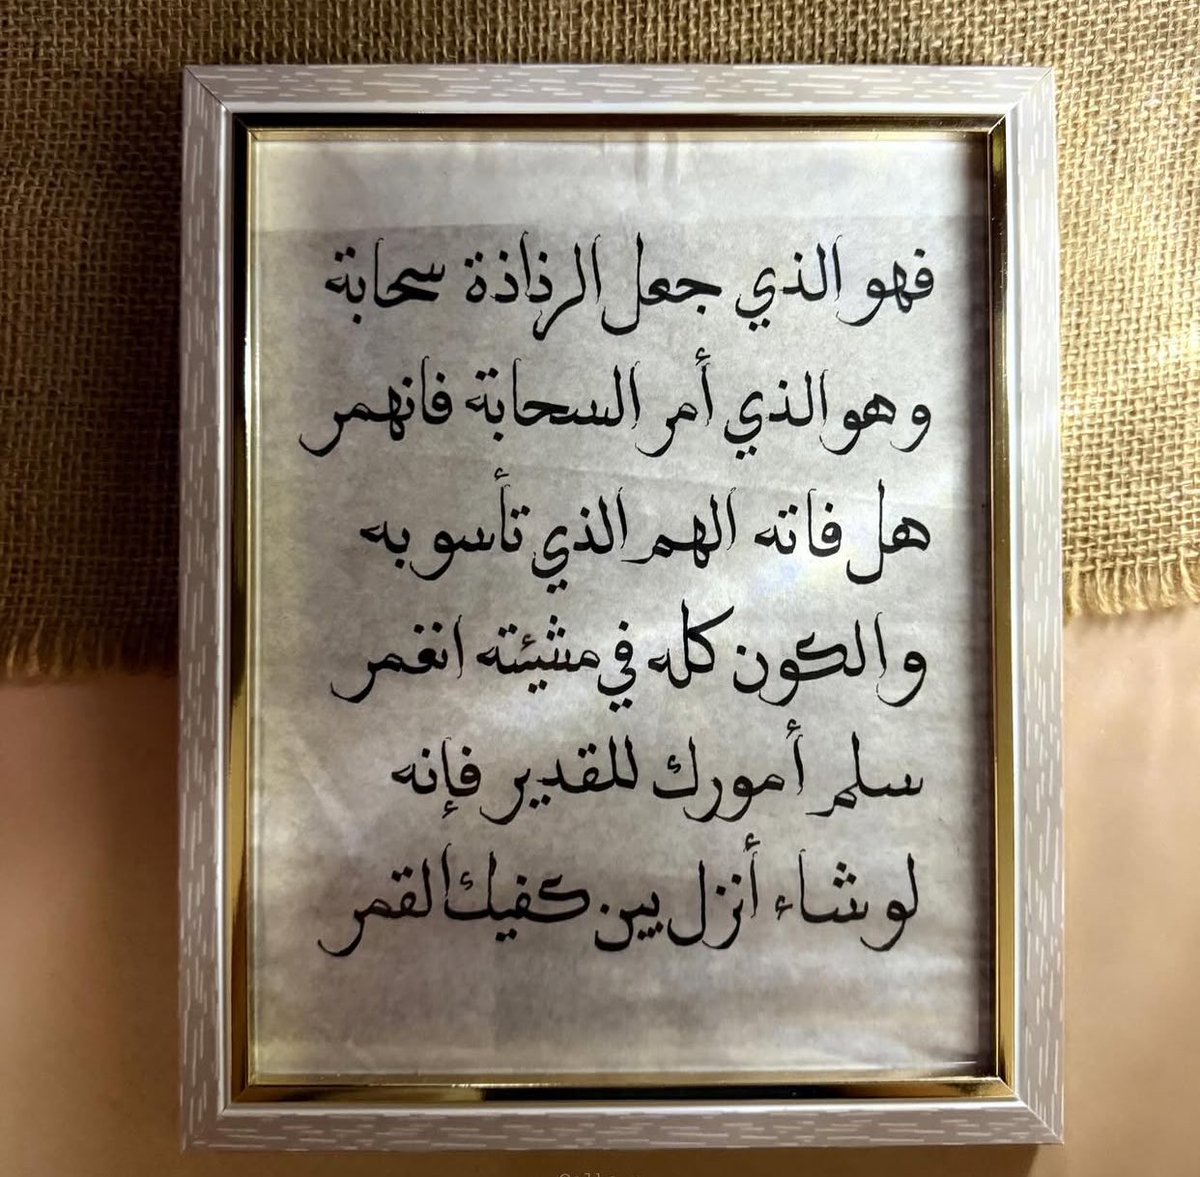 فهو الذي جعل الرذاذة سحابة
وهو الذي أمر السحابة فانهمر
هل فاته الهم الذي تأسو به
والكون كله في مشيئته انغمر
سلم أمورك للقدير فإنه
لو شاء أنزل بين كفيك القمر